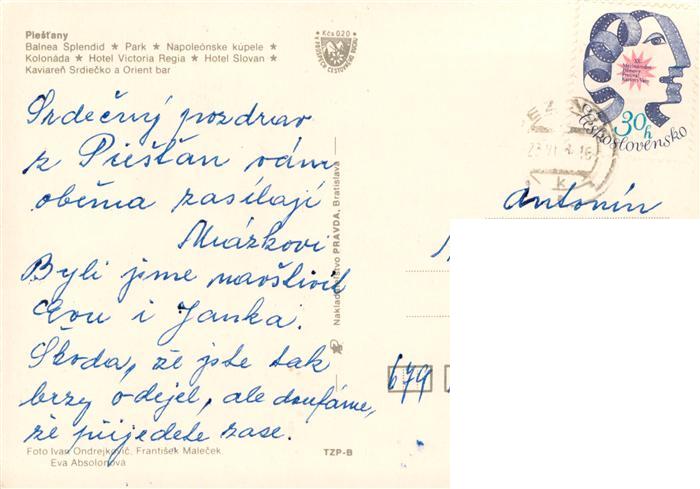 Piešťany
Balnea Splendid ★ Park ★ Napoleónske kúpele ★
Kolonáda ★ Hotel Victoria Regia ★ Hotel Slovan ★
Kaviareň Srdiečko a Orient bar
Kčs 0.20
30h
Československo
Srdečný pozdrav
z Piešťan vám
oběma zasílají
Mrázkovi
Byli jsme navštívit
Evu i Janka.
Škoda, že jste tak
brzy odejel, ale doufáme,
že přijedete zase.
Antonín
674
Nakladateľstvo PRAVDA, Bratislava
Foto Ivan Ondrejkovič, František Maleček,
Eva Absolonová
TZP-B